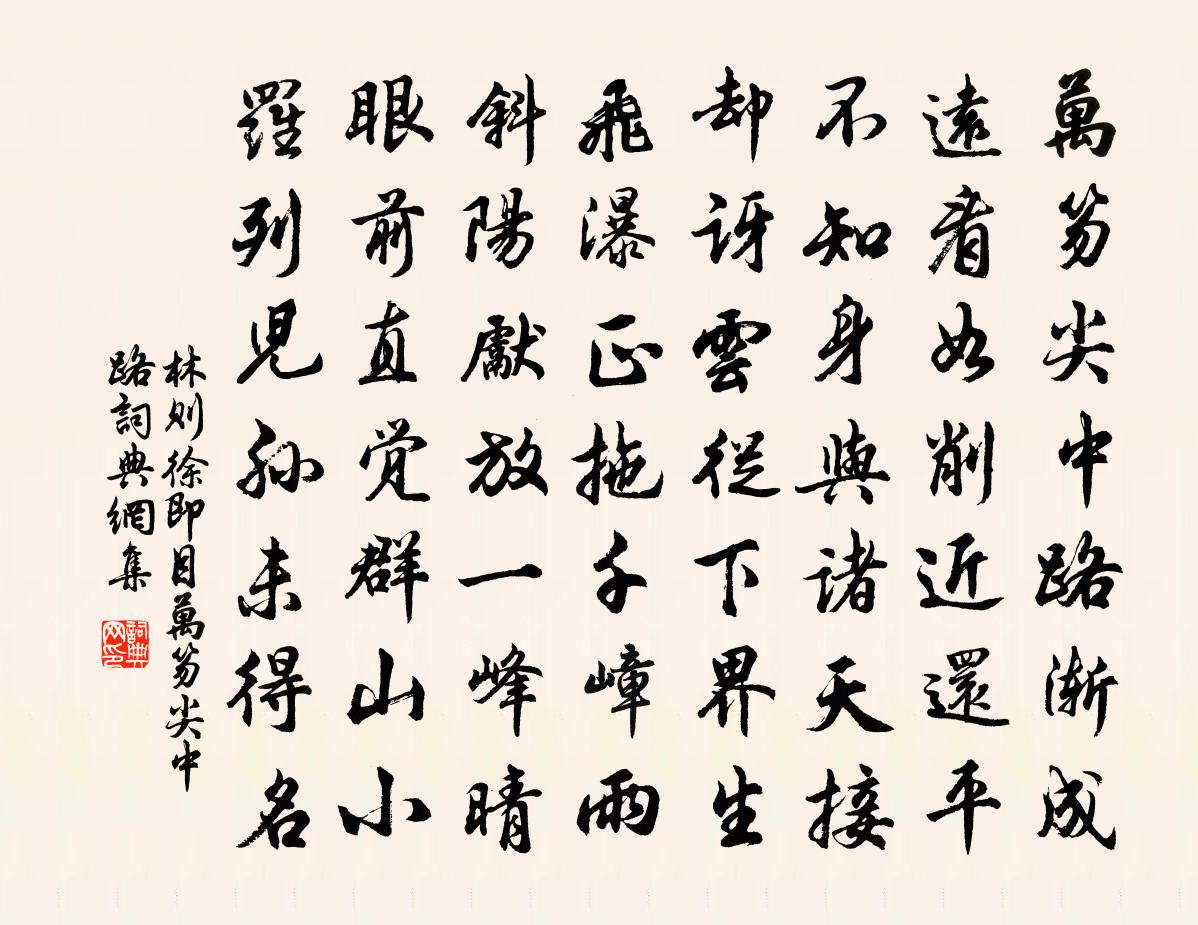 萬笏尖中路漸成
遠看如削近還平
不知身與諸天接
却訝雲從下界生
飛瀑正拖千嶂雨
斜陽獻放一峰晴
眼前直覺群山小
羅列兒孫未得名
林則徐即目萬笏尖中
路詞典網集
詞典
网印